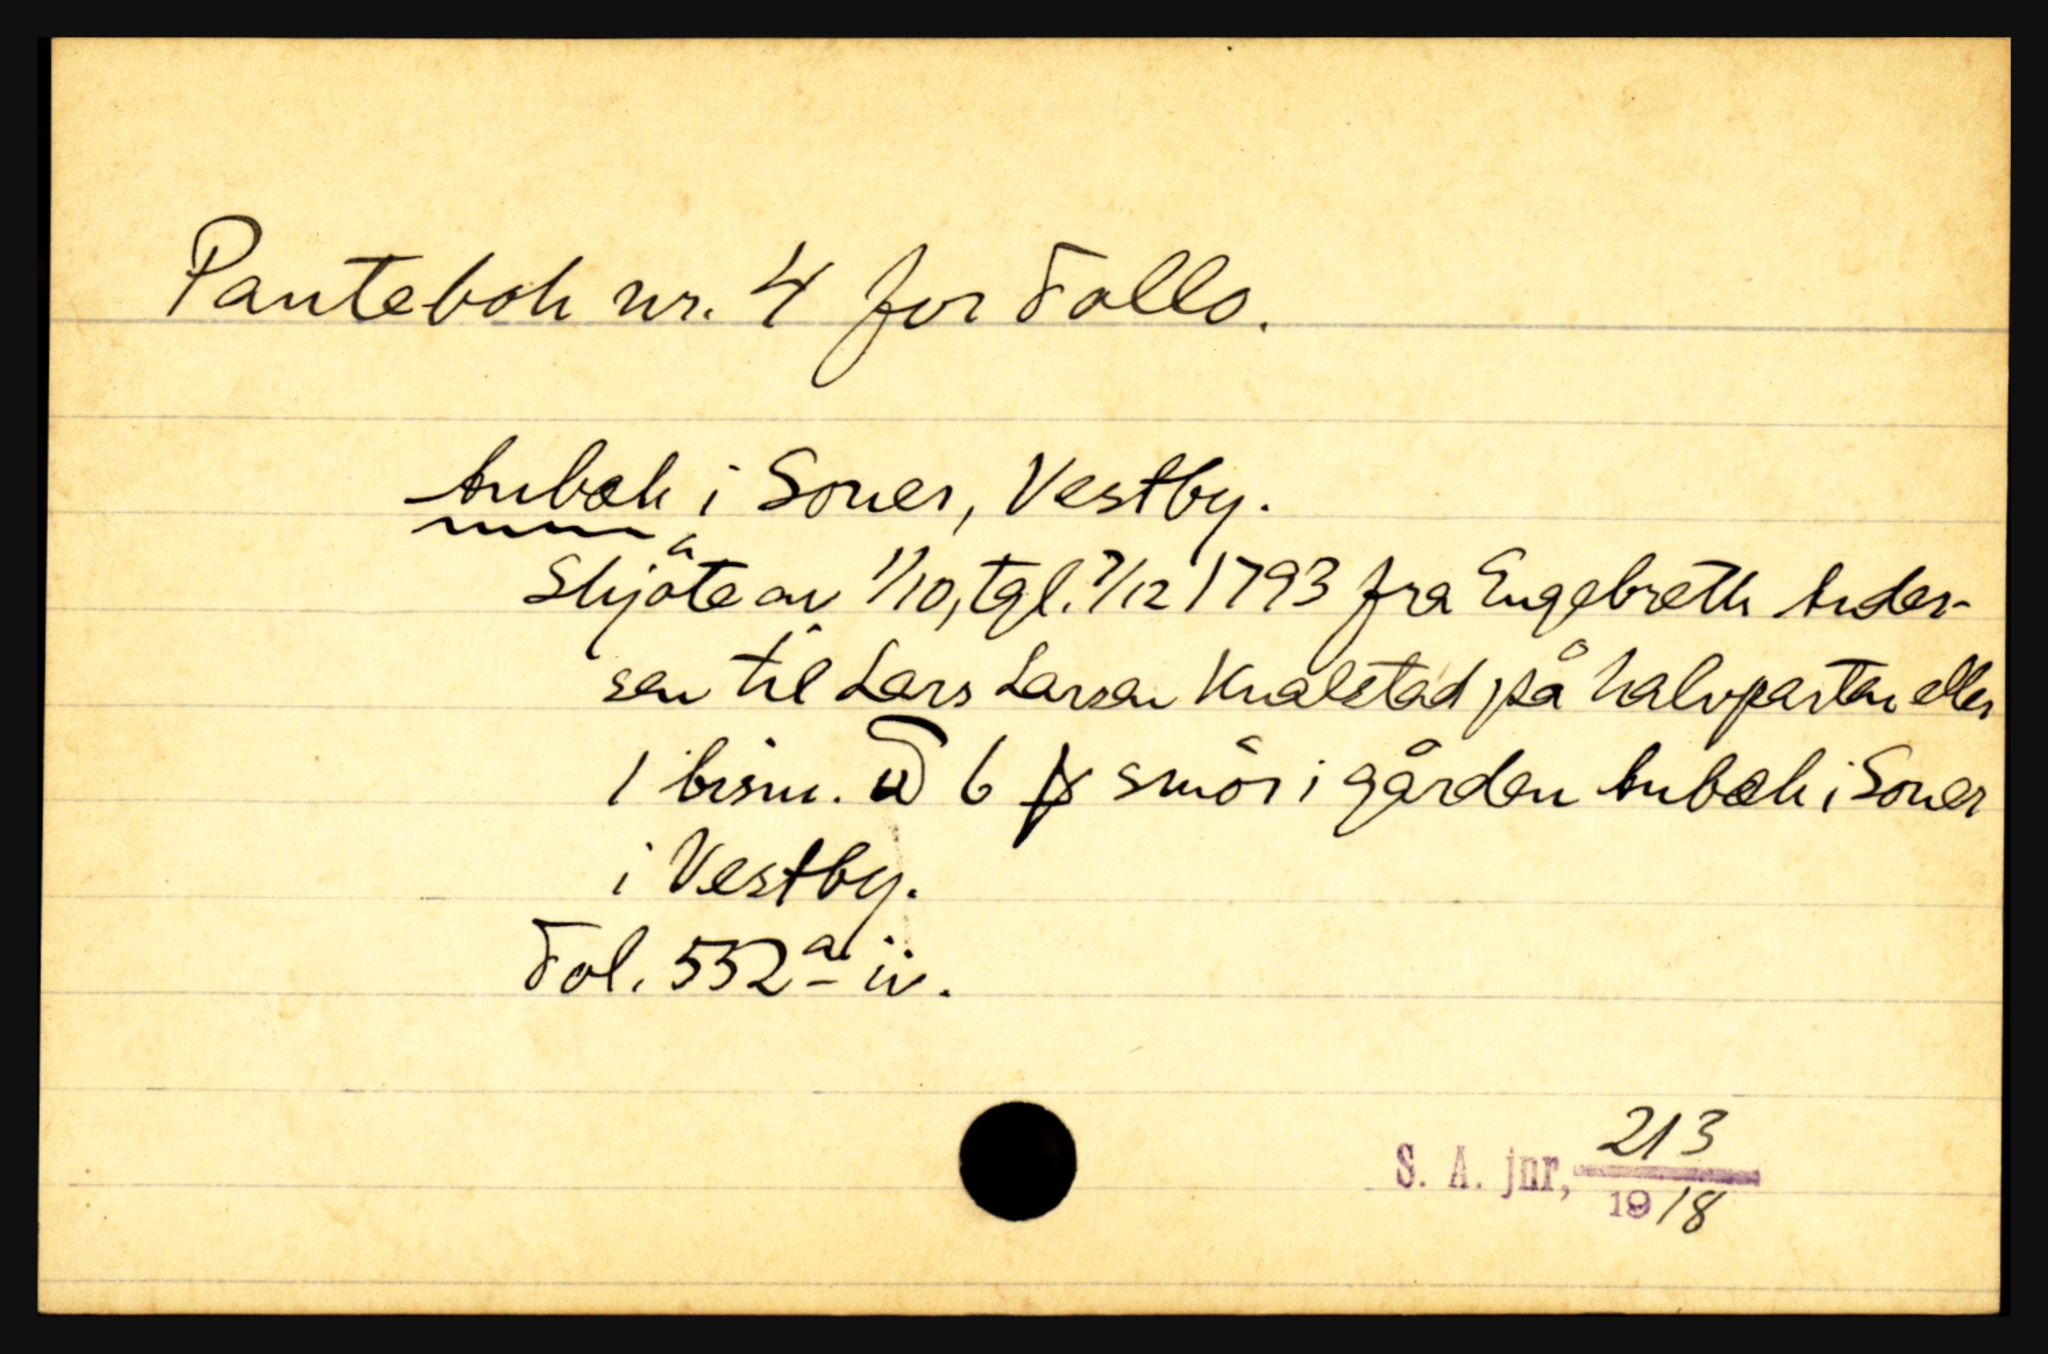 Pantebok nr. 4 for Follo.
Anbæk i Soner, Vestby.
Skjöte av 1/10, tgl. 7/12 1793 fra Engebreth Ander-
sen til Lars Larsen Knalstad på halvparten eller
1 bism. 6 smör i gården Anbæk i Soner
i Vestby.
Fol. 552 a iv.
S. A. jnr, 213
1918